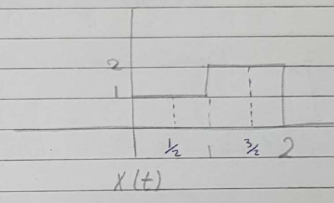 2
1
1/2 1 3/2 2
X(t)